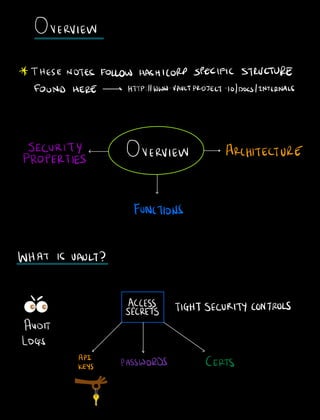 OVERVIEW
* THESE NOTES FOLLOW HASHICORP SPECIFIC STRUCTURE
FOUND HERE → HTTP://WWW.VAULTPROJECT.IO/DOCS/INTERNALS
SECURITY
PROPERTIES
OVERVIEW
ARCHITECTURE
FUNCTIONS
WHAT IS VAULT?
AUDIT
LOGS
ACCESS
SECRETS
TIGHT SECURITY CONTROLS
API
KEYS
PASSWORDS
CERTS